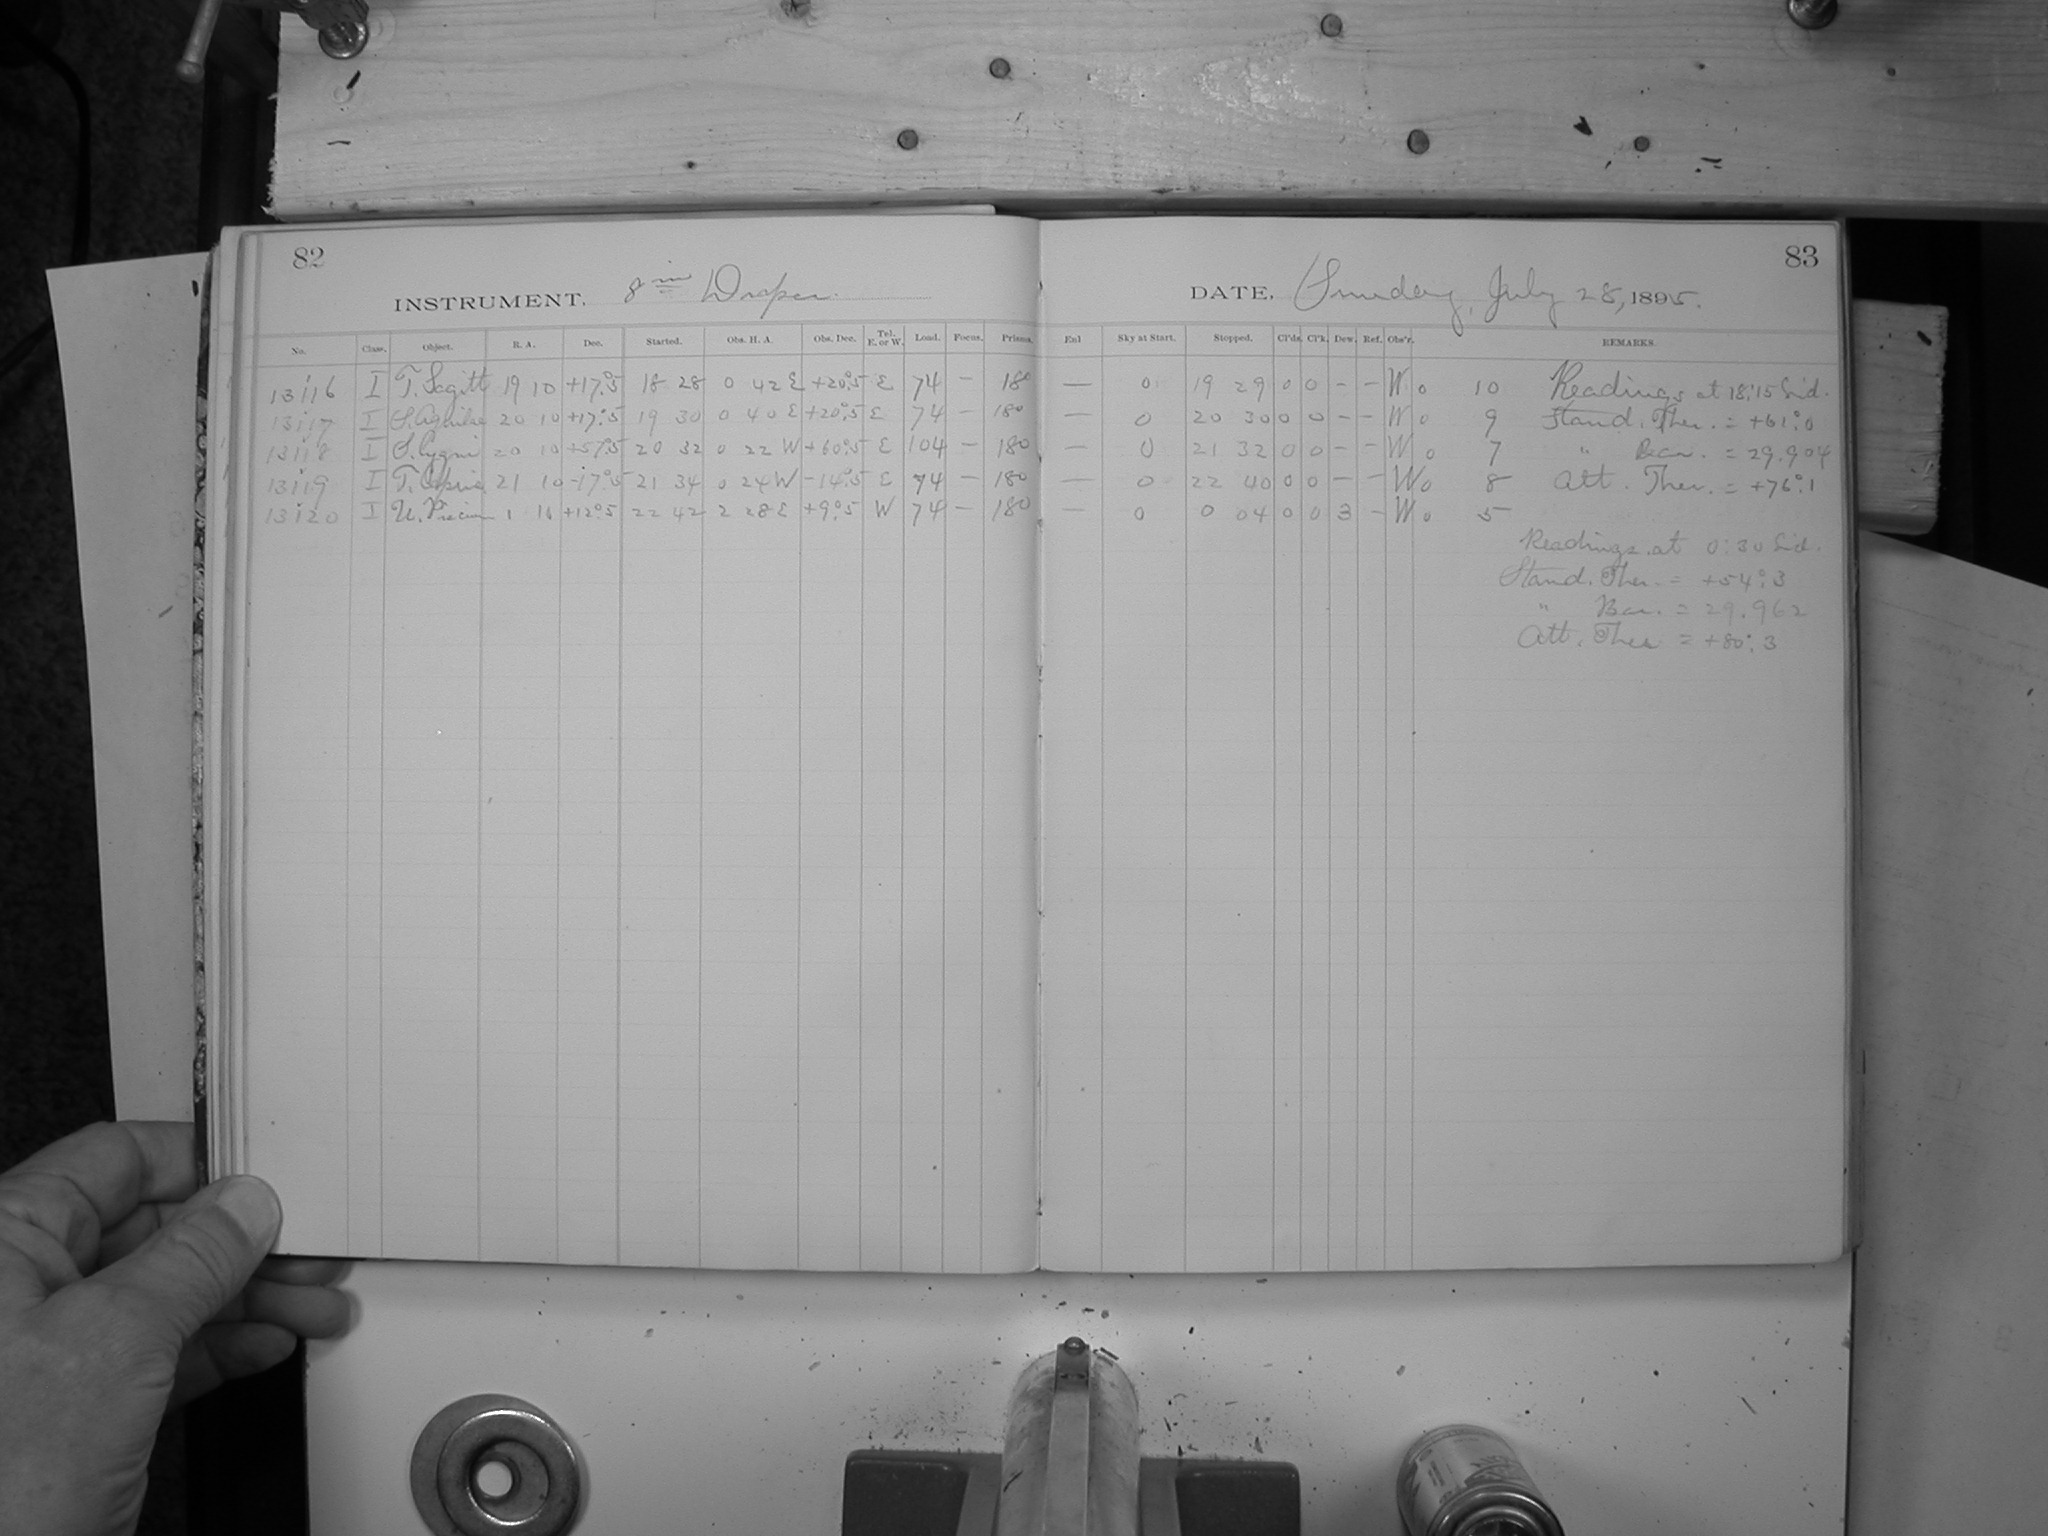 82
INSTRUMENT. 8 in Draper.
No. Class. Object. R. A. Dec. Started. Obs. H. A. Obs. Dec. Tel. E. or W. Load. Focus. Prisms.
13116 I T. Sagitt 19 10 +17°.5 18 28 0 42 E +20°.5 E 74 — 180
13117 I S. Aquilae 20 10 +17°.5 19 30 0 40 E +20°.5 E 74 — 180
13118 I S. Cygni 20 10 +57°.5 20 32 0 22 W +60°.5 E 104 — 180
13119 I T. Capric 21 10 -17°.5 21 34 0 24 W -14°.5 E 74 — 180
13120 I U. Piscium 1 16 +12°.5 22 42 2 28 E +9°.5 W 74 — 180
83
DATE. Sunday, July 28, 1895.
Enl Sky at Start. Stopped. Cl'ds. Cl'k. Dew. Ref. Obs'r. REMARKS.
— 0 19 29 0 0 - - W o 10 Readings at 18:15 Sid.
— 0 20 30 0 0 - - W o 9 Stand. Ther. = +61°.0
— 0 21 32 0 0 - - W o 7 " Bar. = 29.904
— 0 22 40 0 0 - - W o 8 Att. Ther. = +76°.1
— 0 0 04 0 0 3 - W o 5
Readings at 0:30 Sid.
Stand. Ther. = +54°.3
" Bar. = 29.962
Att. Ther = +80°.3